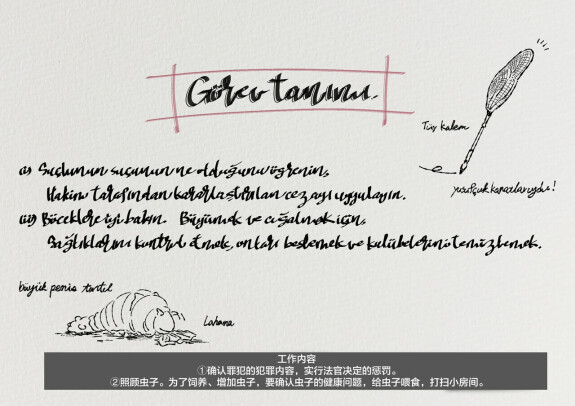 Görev tanımı
Tüy kalem
i) Suçlunun suçunun ne olduğunu öğrenin,
yusufçuk kanatlarıydı!
Hakim tarafından kararlaştırılan cezayı uygulayın.
ii) Böceklere iyi bakın. Büyümek ve çoğalmak için,
Sağlıklarını kontrol etmek, onları beslemek ve kulübelerini temizlemek.
büyük penis tırtıl
Lahana
工作内容
①确认罪犯的犯罪内容，实行法官决定的惩罚。
②照顾虫子。为了饲养、增加虫子，要确认虫子的健康问题，给虫子喂食，打扫小房间。